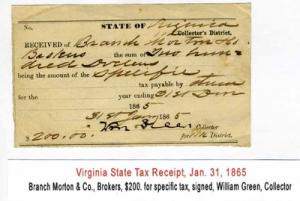 No. STATE OF Virginia
Collector's District.
RECEIVED of Branch Morton & Co
the sum of Two hun-
dred Dollars
being the amount of the specific
tax payable by them
for the year ending 31st Dec
1865
31st Jan 1865
$200.00. Wm Green Collector
for District.
Virginia State Tax Receipt, Jan. 31, 1865
Branch Morton & Co., Brokers, $200. for specific tax, signed, William Green, Collector